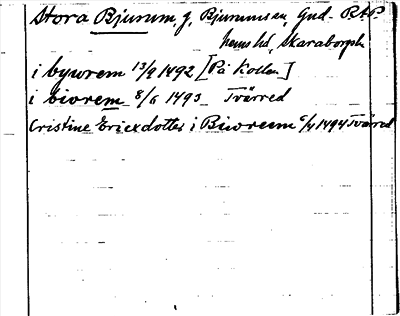 Stora Bjurum, g, Bjurums sn, Gud. RAP.
hems hd, Skaraborgs l.
i bywrem 13/9 1492 [På Kollen]
i biorem 8/6 1493 Tvärred
Cristine Ericxdotter i Biworem 6/4 1494 Tvärred